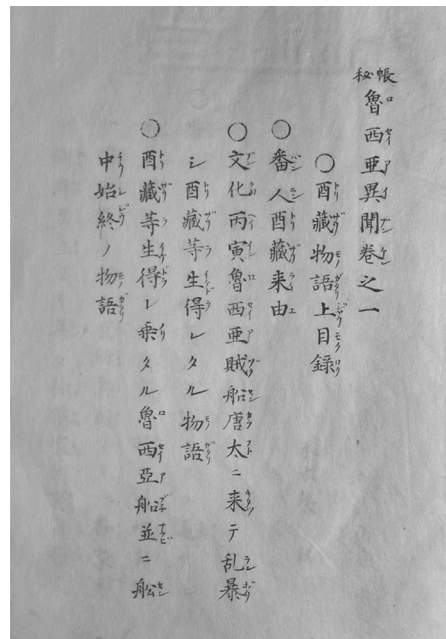 秘帳 魯西亜異聞巻之一
〇酉藏物語上目録
〇番人酉藏来由
〇文化丙寅魯西亜賊船唐太ニ来テ乱暴
シ酉藏等生得レタル物語
〇酉藏等生得レ乗タル魯西亞船並ニ船
中始終ノ物語